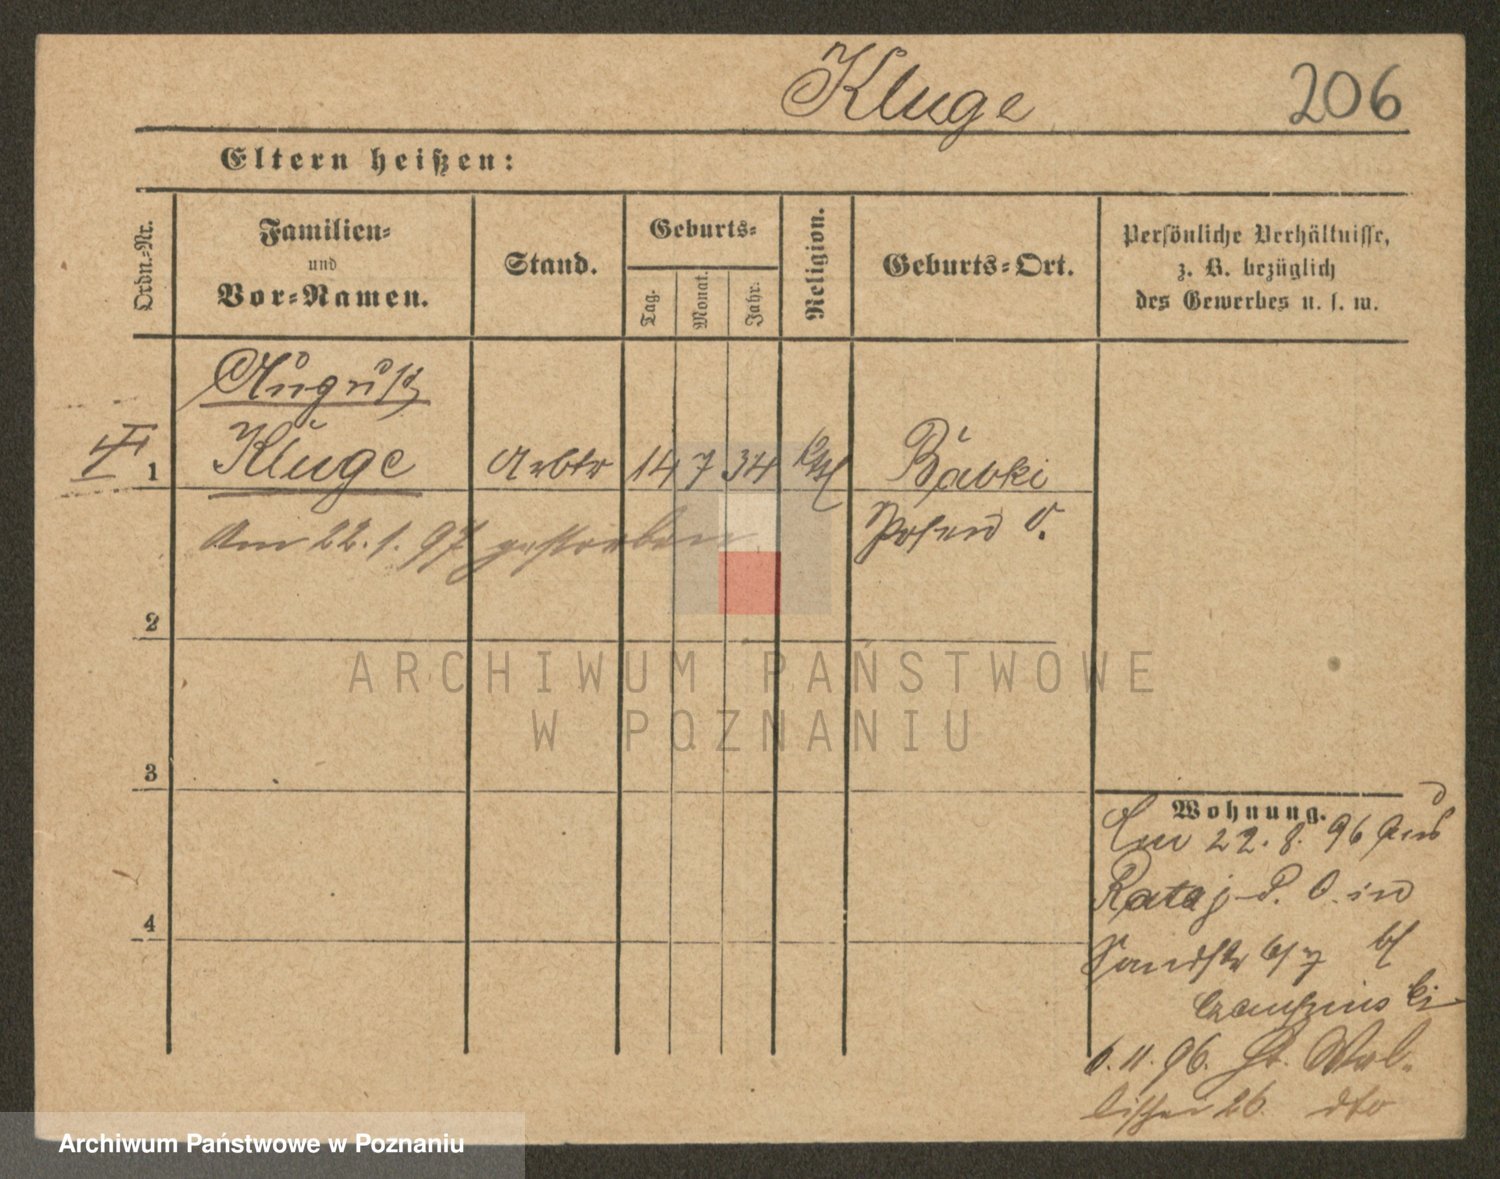 Kluge 206
Eltern heißen:
Ordn.-Nr.
Familien-
und
Vor-Namen.
Stand.
Geburts-
Tag.
Monat.
Jahr.
Religion.
Geburts-Ort.
Persönliche Verhältnisse,
z. B. bezüglich
des Gewerbes u. s. w.
August
1 Kluge Arbtr 14 7 34 Babki
Am 22.1.97 gestorben Posen O.
2
3
4
Wohnung.
22.8.96 aus
Rataj P. O. in
Sandstr 7 bei
6.11.96. St. Wal-
lischei 26. dto
ARCHIWUM PAŃSTWOWE
W POZNANIU
Archiwum Państwowe w Poznaniu